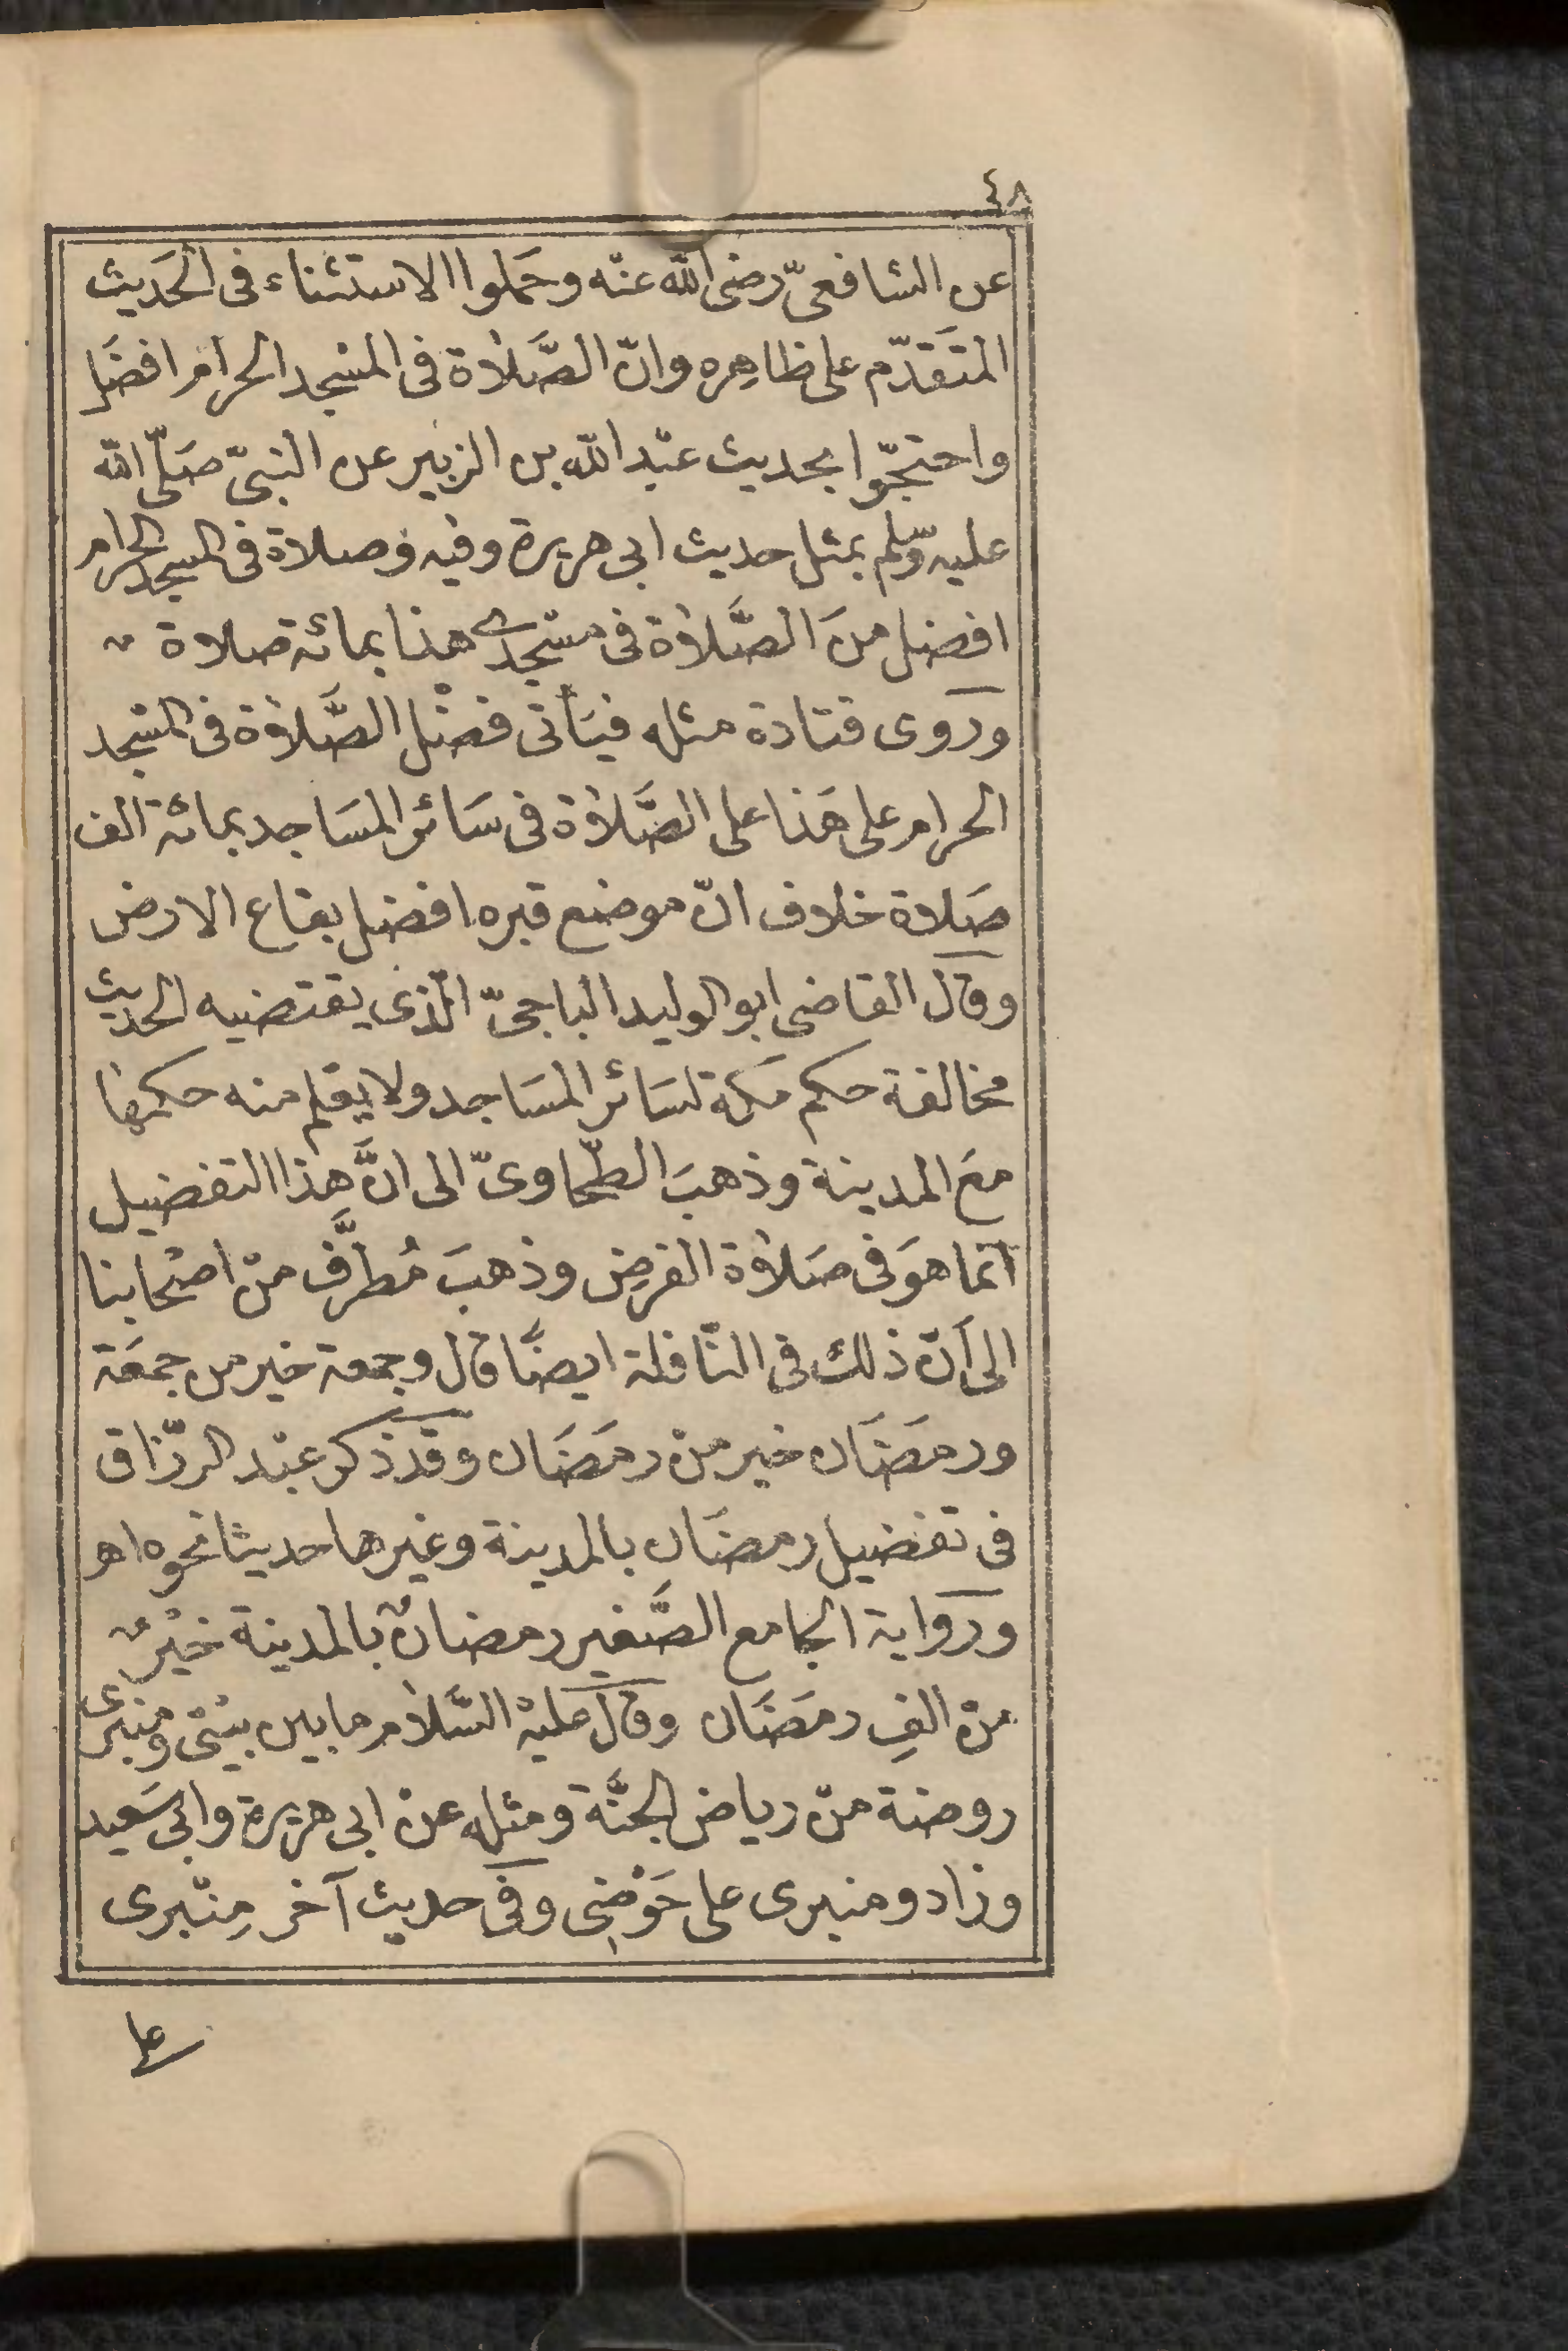 ٤٨
عن الشافعىّ رضى الله عنه وحَملوا الاستثناء فى الحَديث
المتَقدّم على ظاهِره وانّ الصَّلاة فى المسْجد الحرام افضَل
واحتجّوا بحديث عبْد الله بن الزبير عن النبىّ صَلّى الله
عليه وسّلم بمثل حديث ابى هريرة وفيه وصلاة فى المسجد الحرام
افضل منَ الصَّلاة فى مسْجدى هذا بمائة صلاة
وروى قتادة مثله فيَأتى فضْل الصَّلاة فى المسْجد
الحرام على هَذا على الصَّلاة فى سَائر المسَاجد بمائة الف
صَلاة خلاف انّ موضع قبره افضل بقاع الارض
وقال القاضى ابو الوليد الباجىّ الّذى يقتضيه الحديث
مخالفة حكم مَكة لسَائر المسَاجد ولا يعلم منه حكمها
معَ المدينة وذهبَ الطّحاوىّ الى انَّ هذا التفضيل
انما هوَ فى صَلاة الفرضِ وذهبَ مُطرَّف منْ اصْحابنا
الى أنّ ذلك فى النّافلة ايضًا قال وجمعة خير من جمعَة
ورمَضَان خير منْ رمَضَان وقد ذكر عبْد الرّزاق
فى تفضيل رمضَان بالمدينة وغيرها حديثا نحوه اهـ
ورواية الجامع الصَّغير رمضانُ بالمدينة خيْرٌ
منْ الفِ رمَضَان وقال عليْه السَّلام ما بين بيْتى ومنبرى
روضة منْ رياض الجنَّة ومثله عنْ ابى هريرة وابى سَعيد
وزاد ومنبرى على حَوْضِى وفى حديث آخر مِنْبرى
على